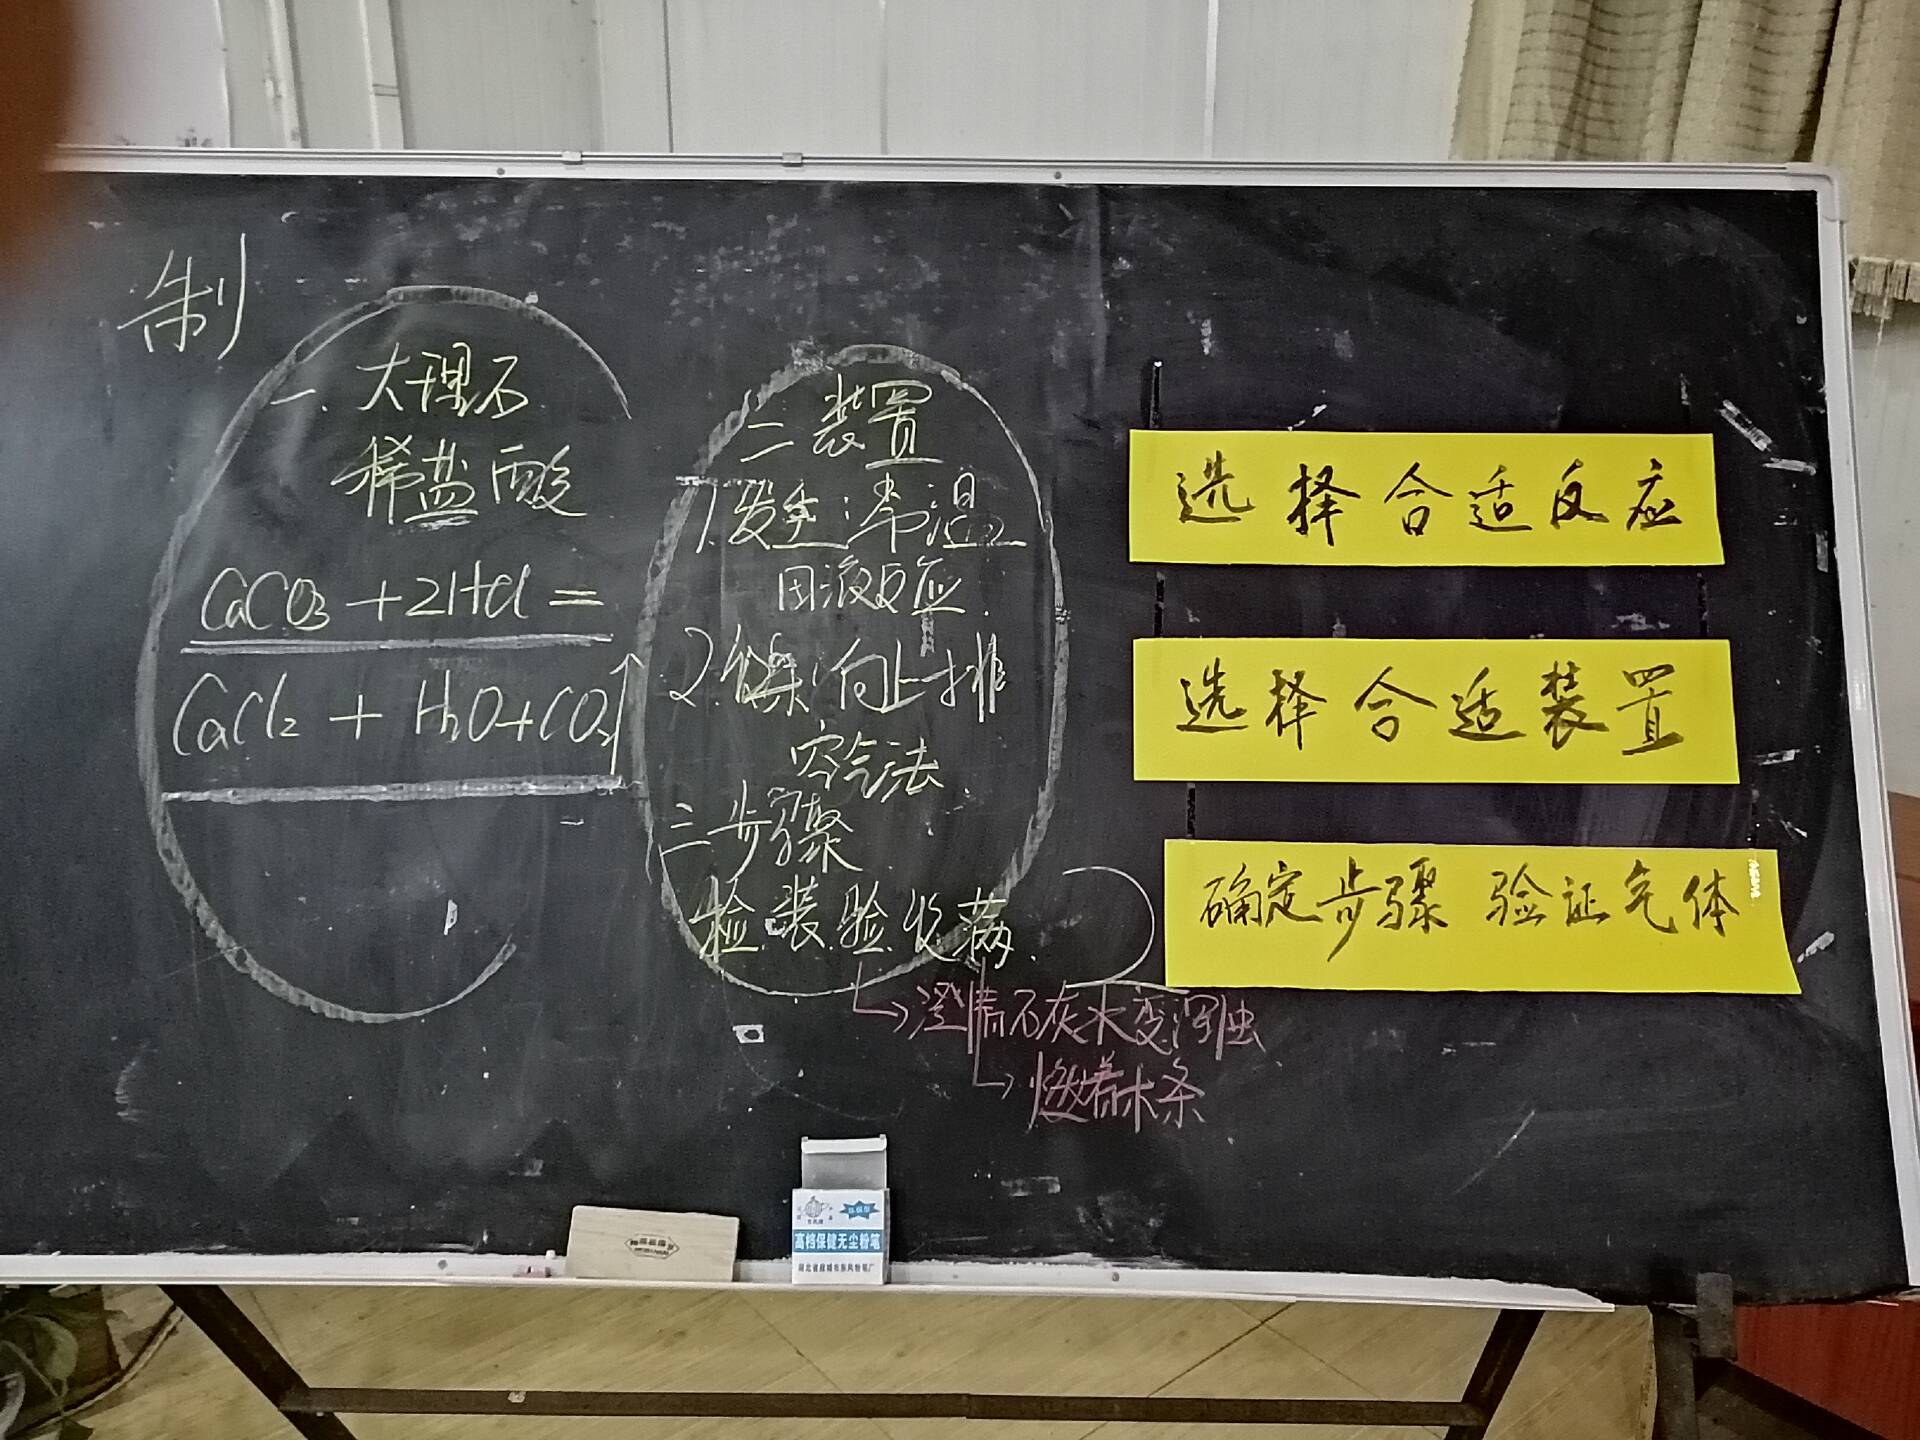 制
一. 大理石
稀盐酸
CaCO3 + 2HCl =
CaCl2 + H2O + CO2↑
二 装置
1.发生:常温
固液反应.
2.收集:向上排
空气法
三 步骤
检.装.验.收.满.
→澄清石灰水变浑浊
→燃着木条
选择合适反应
选择合适装置
确定步骤 验证气体
高档保健无尘粉笔